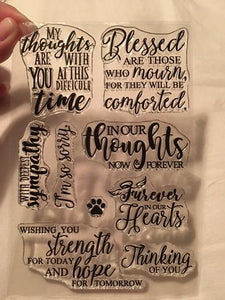 MY
thoughts
ARE WITH
YOU AT THIS
DIFFICULT
time
Blessed
ARE THOSE
WHO mourn,
FOR THEY WILL BE
comforted.
sympathy
I'm so sorry
IN OUR
thoughts
NOW FOREVER
Furever
IN OUR
Hearts
WISHING YOU
strength
FOR TODAY
AND hope
FOR TOMORROW
Thinking
OF YOU